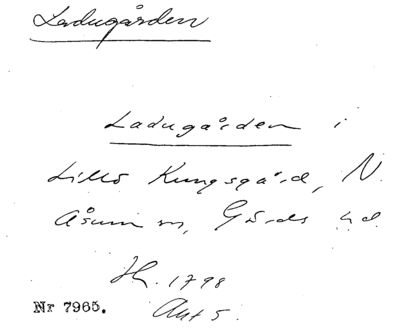 Ladugården
Ladugården i
Lillö Kungsgård, N.
Åsum sn, Gärds hd
Hk. 1798
Akt 5.
Nr 7965.